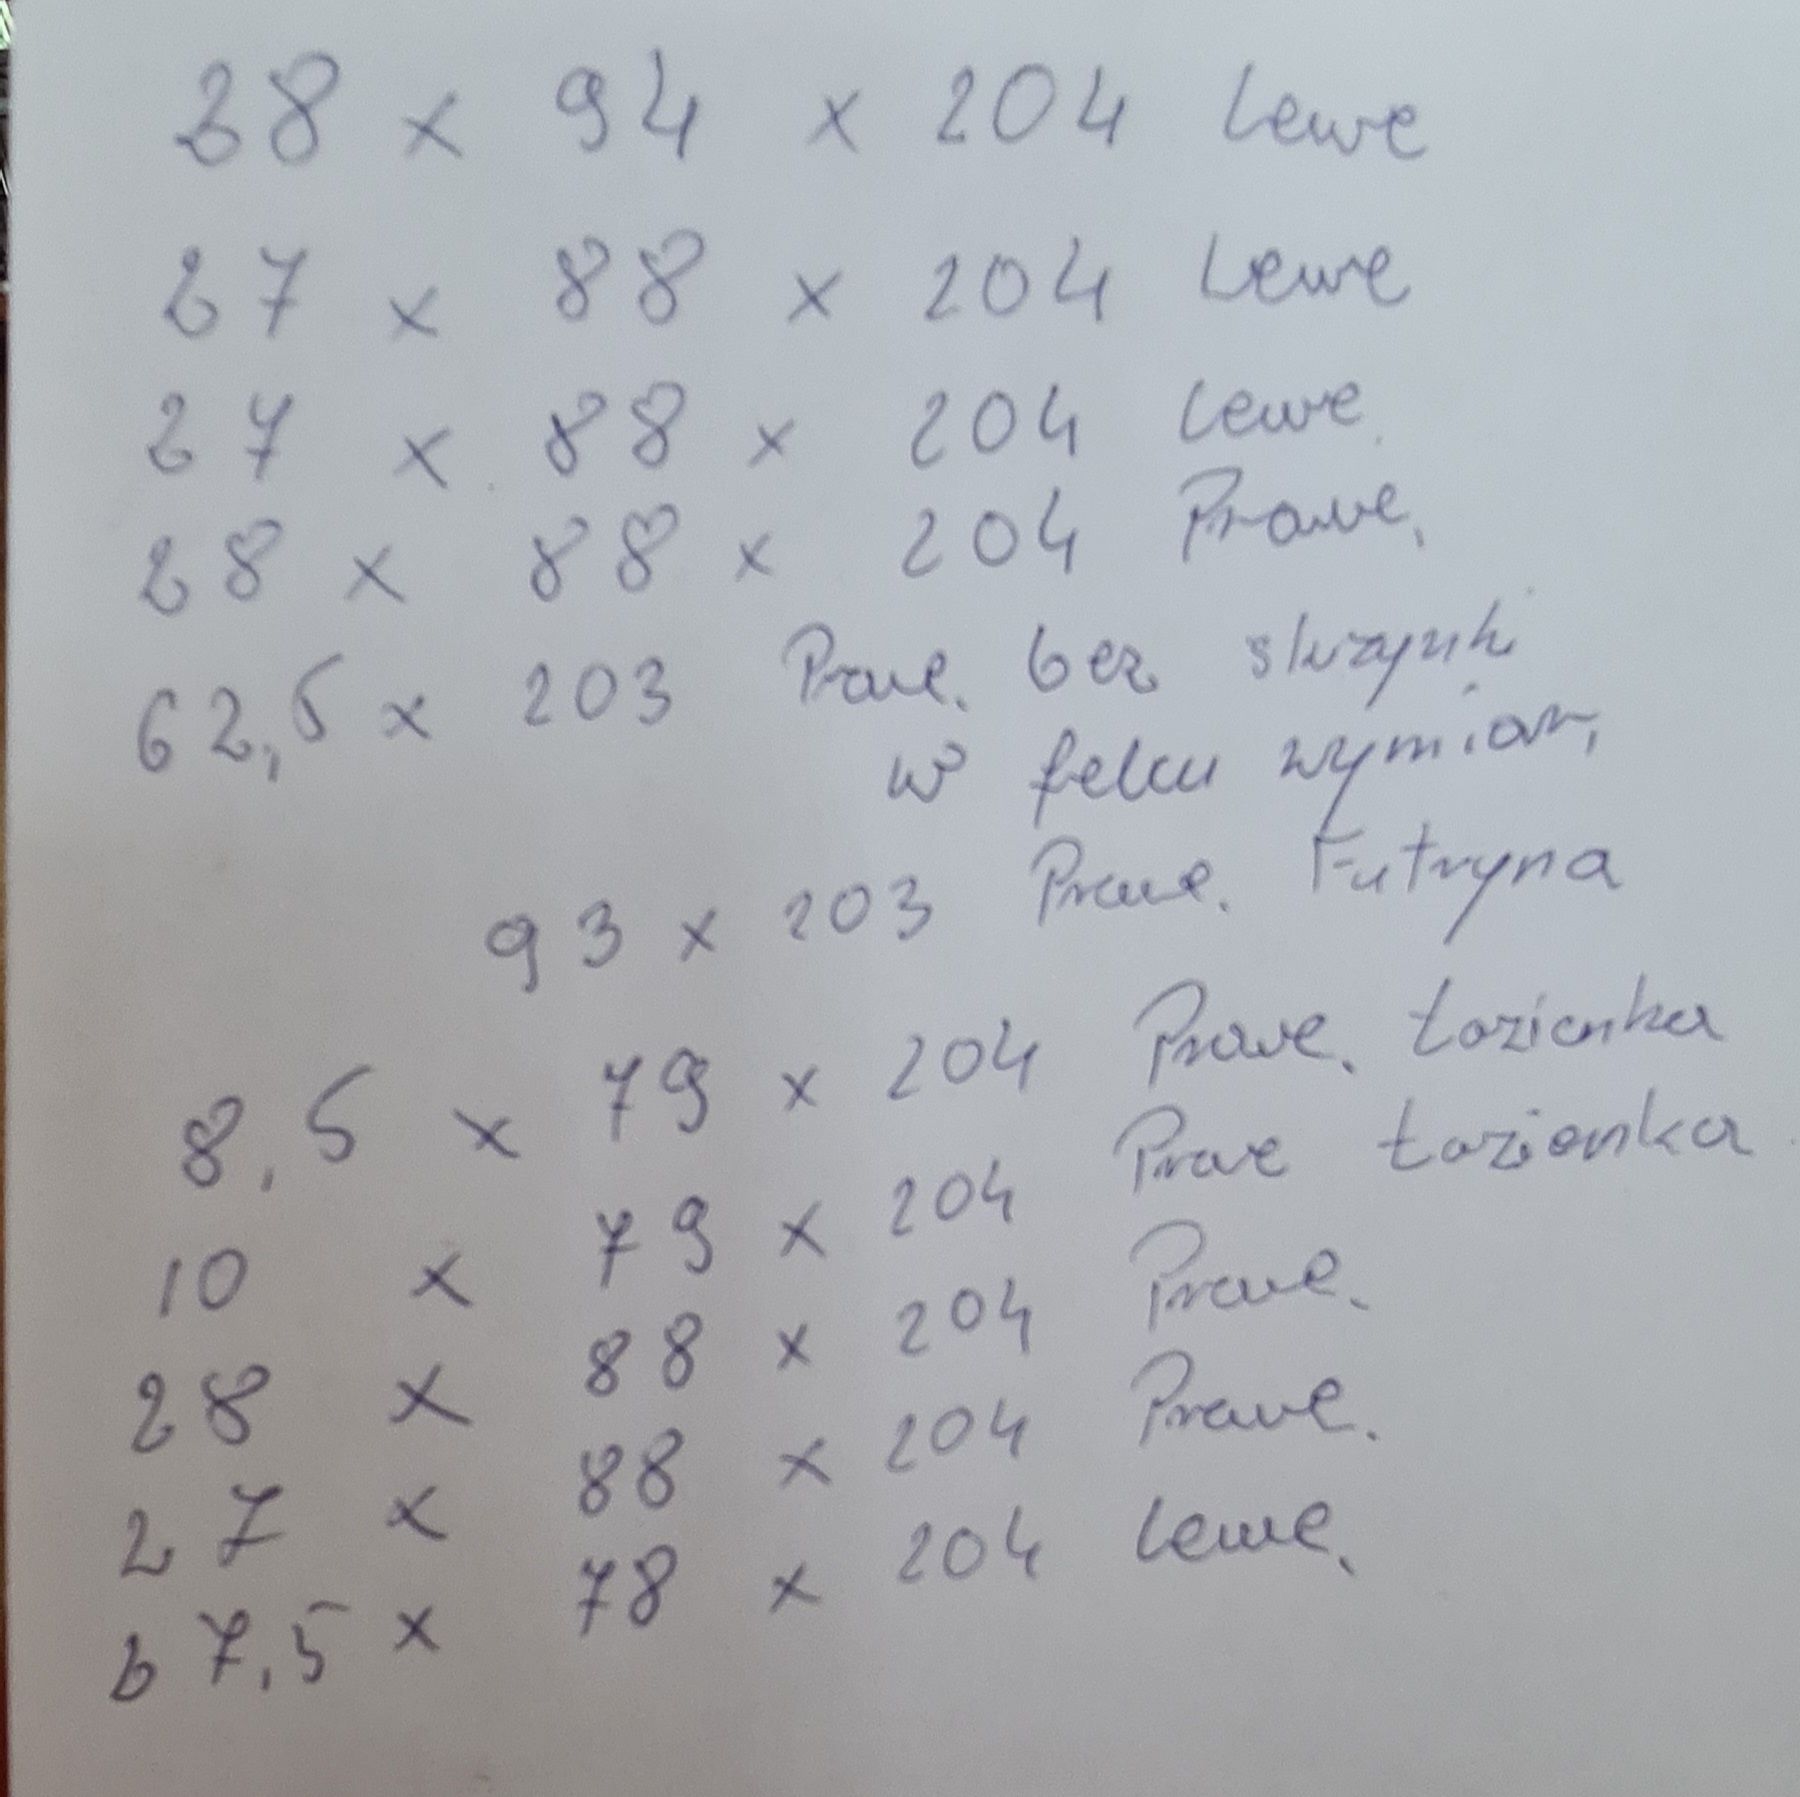 28 x 94 x 204 Lewe
27 x 88 x 204 Lewe
27 x 88 x 204 Lewe.
28 x 88 x 204 Prawe.
62,5 x 203 Prawe. bez skrzynki
w felcu wymiar,
93 x 203 Prawe. Futryna
8,5 x 79 x 204 Prawe. Łazienka
10 x 79 x 204 Prawe Łazienka
28 x 88 x 204 Prawe.
27 x 88 x 204 Prawe.
7,5 x 78 x 204 Lewe.